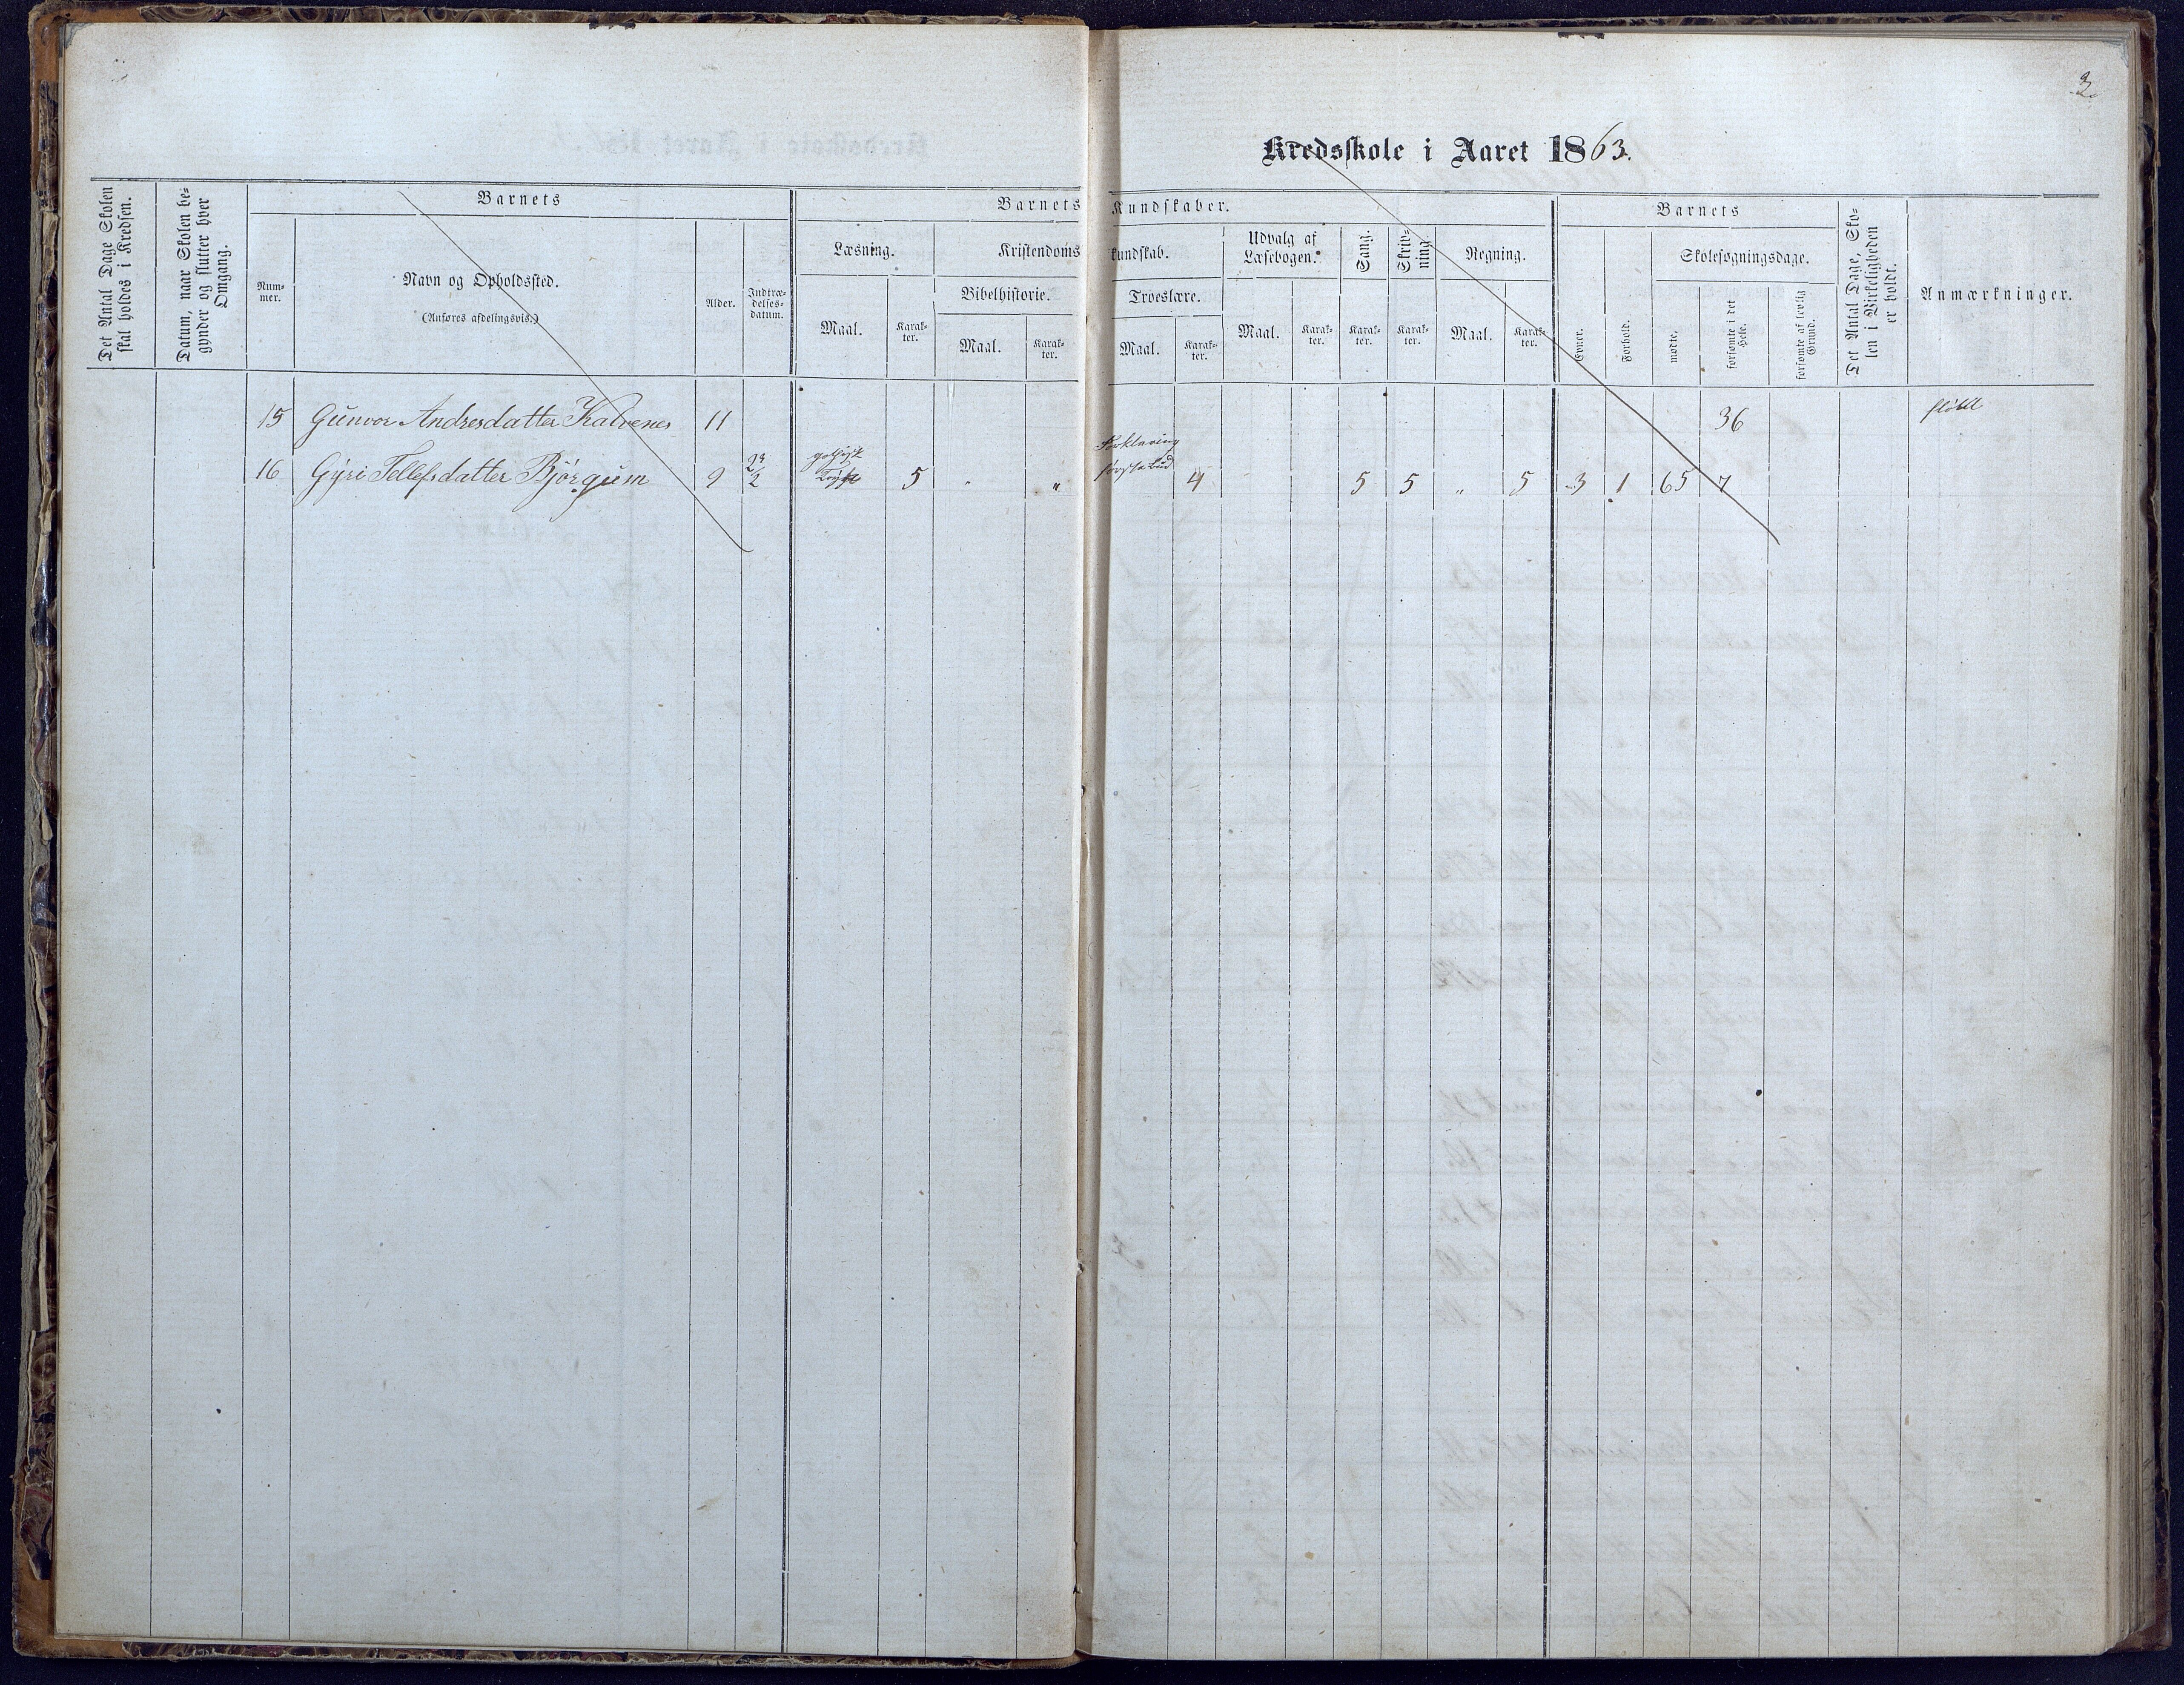 3
Kredsskole i Aaret 1863.
Det Antal Dage Skolen skal holdes i Kredsen.
Datum, naar Skolen begynder og slutter hver Omgang.
Barnets
Num-
mer.
Navn og Opholdssted.
(Anføres afdelingsvis.)
Alder.
Indtræ-
delses-
datum.
Barnets Kundskaber.
Læsning.
Maal.
Karak-
ter.
Kristendomskundskab.
Bibelhistorie.
Maal.
Karak-
ter.
Troeslære.
Maal.
Karak-
ter.
Udvalg af
Læsebogen.
Maal.
Karak-
ter.
Sang.
Karak-
ter.
Skriv-
ning.
Karak-
ter.
Regning.
Maal.
Karak-
ter.
Barnets
Evner.
Forhold.
Skolesøgningsdage.
mødte.
forsømte i det
Hele.
forsømte af lovlig
Grund.
Det Antal Dage, Sko-
len i Virkeligheden
er holdt.
Anmærkninger.
15 Gunvor Andresdatter Kalvenes 11 36
16 Gyri Tellefsdatter Bjørgum 9 23/2 5 " " Forklaring første bud 4 5 5 " 5 3 1 65 7